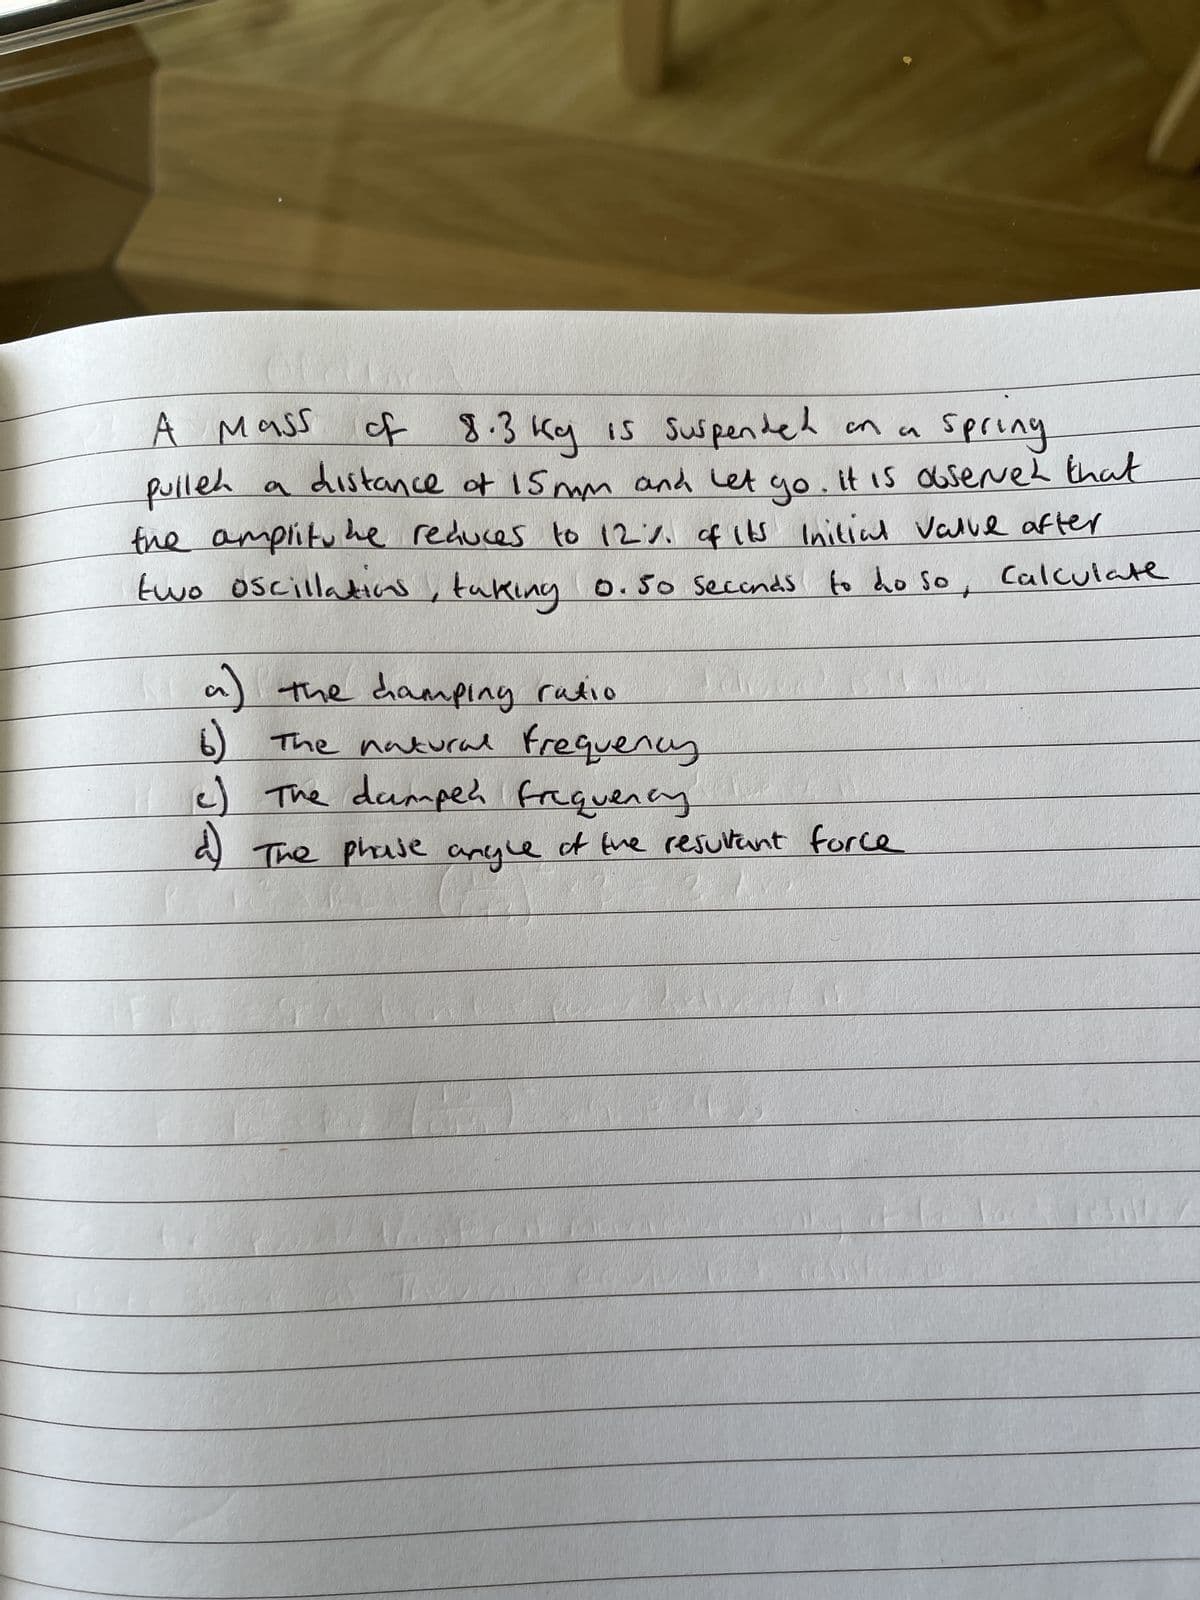 A Mass of 8.3 Kg is suspended on a spring
pulled a distance of 15mm and let go. it is observed that
the amplitude reduces to 12% of its initial value after
two oscillations, taking 0.50 seconds to do so, Calculate
a) the damping ratio
b) The natural frequency
c) The damped frequency
d) The phase angle of the resultant force